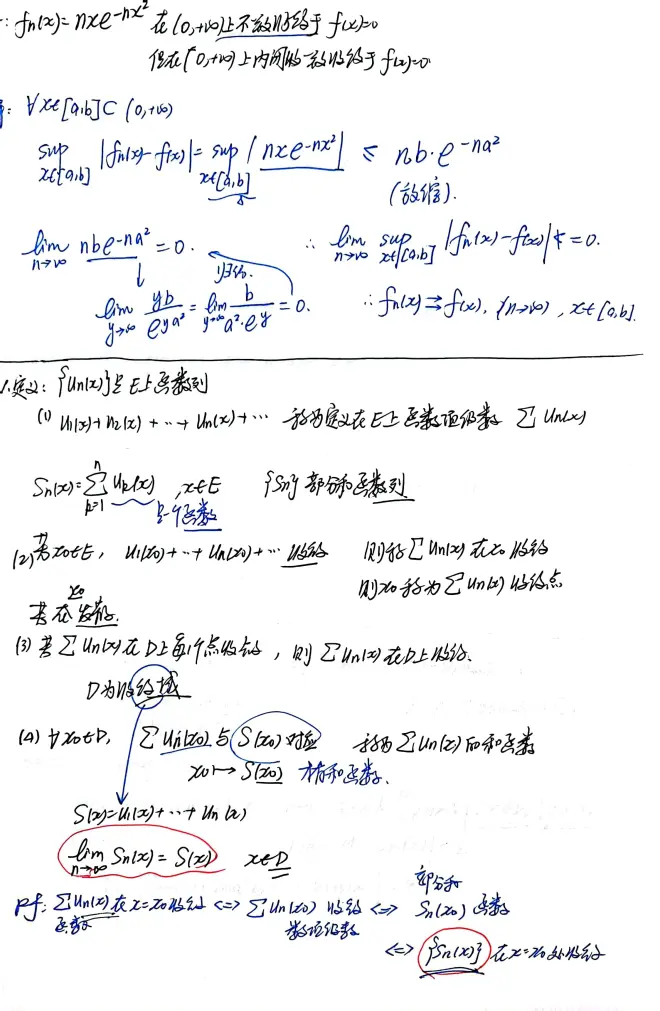 : fₙ(x) = nxe^{-nx²} 在(0,+∞)上不一致收敛于 f(x)=0
但在(0,+∞)上内闭一致收敛于f(x)=0
: ∀x∈[a,b]⊂(0,+∞)
sup_{x∈[a,b]} |fₙ(x)-f(x)| = sup_{x∈[a,b]} |nxe^{-nx²}| ≤ nb·e^{-na²}
(放缩).
lim_{n→∞} nbe^{-na²} = 0. ∴ lim_{n→∞} sup_{x∈[a,b]} |fₙ(x)-f(x)| = 0.
↓ 归结.
lim_{y→∞} yb/e^{ya²} = lim_{y→∞} b/(a²·e^y) = 0. ∴ fₙ(x)⇉f(x), (n→∞), x∈[a,b].
1.定义: {Un(x)}是E上函数列
(1) U₁(x)+U₂(x)+⋯+Un(x)+⋯ 称为定义在E上函数项级数 ΣUn(x)
Sn(x)=Σ_{k=1}^{n} Uk(x), x∈E {Sn} 部分和函数列
是一个函数
(2) 若x₀∈E, U₁(x₀)+⋯+Un(x₀)+⋯ 收敛 则称ΣUn(x)在x₀收敛
则x₀称为ΣUn(x)收敛点
若在x₀发散.
(3) 若ΣUn(x)在D上每个点收敛, 则ΣUn(x)在D上收敛.
D为收敛域
(4) ∀x₀∈D, ΣUn(x₀)与S(x₀)对应 称为ΣUn(x)的和函数
x₀↦S(x₀) 才有和函数.
S(x)=U₁(x)+⋯+Un(x)
lim_{n→∞} Sn(x)=S(x) x∈D
部分和
pf: ΣUn(x)在x=x₀收敛 <=> ΣUn(x₀)收敛 <=> Sn(x₀) 函数
函数 数项级数
<=> {Sn(x)}在x=x₀处收敛